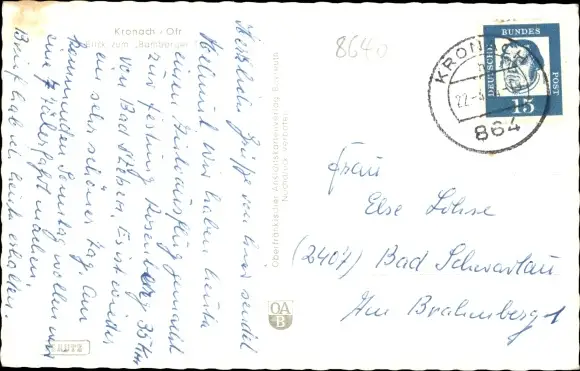 Kronach - Ofr.
Blick zum "Bamberger
Herzliche Grüße von hier sendet
Helmut. Wir haben heute
einen Busausflug gemacht
zur Festung Rosenberg 35 km
von Bad Steben. Es ist wieder
ein sehr schöner Tag. Am
kommenden Sonntag wollen wir
eine Fahrt machen.
Brief hab ich heute erhalten.
RUTZ
Oberfränkischer Ansichtskartenverlag Bayreuth
Nachdruck verboten
OA
B
8640
KRONACH
22.-8.
864
DEUTSCHE
BUNDES
POST
15
Frau
Else Lohse
(2407) Bad Schwartau
Am Brahmberg 1